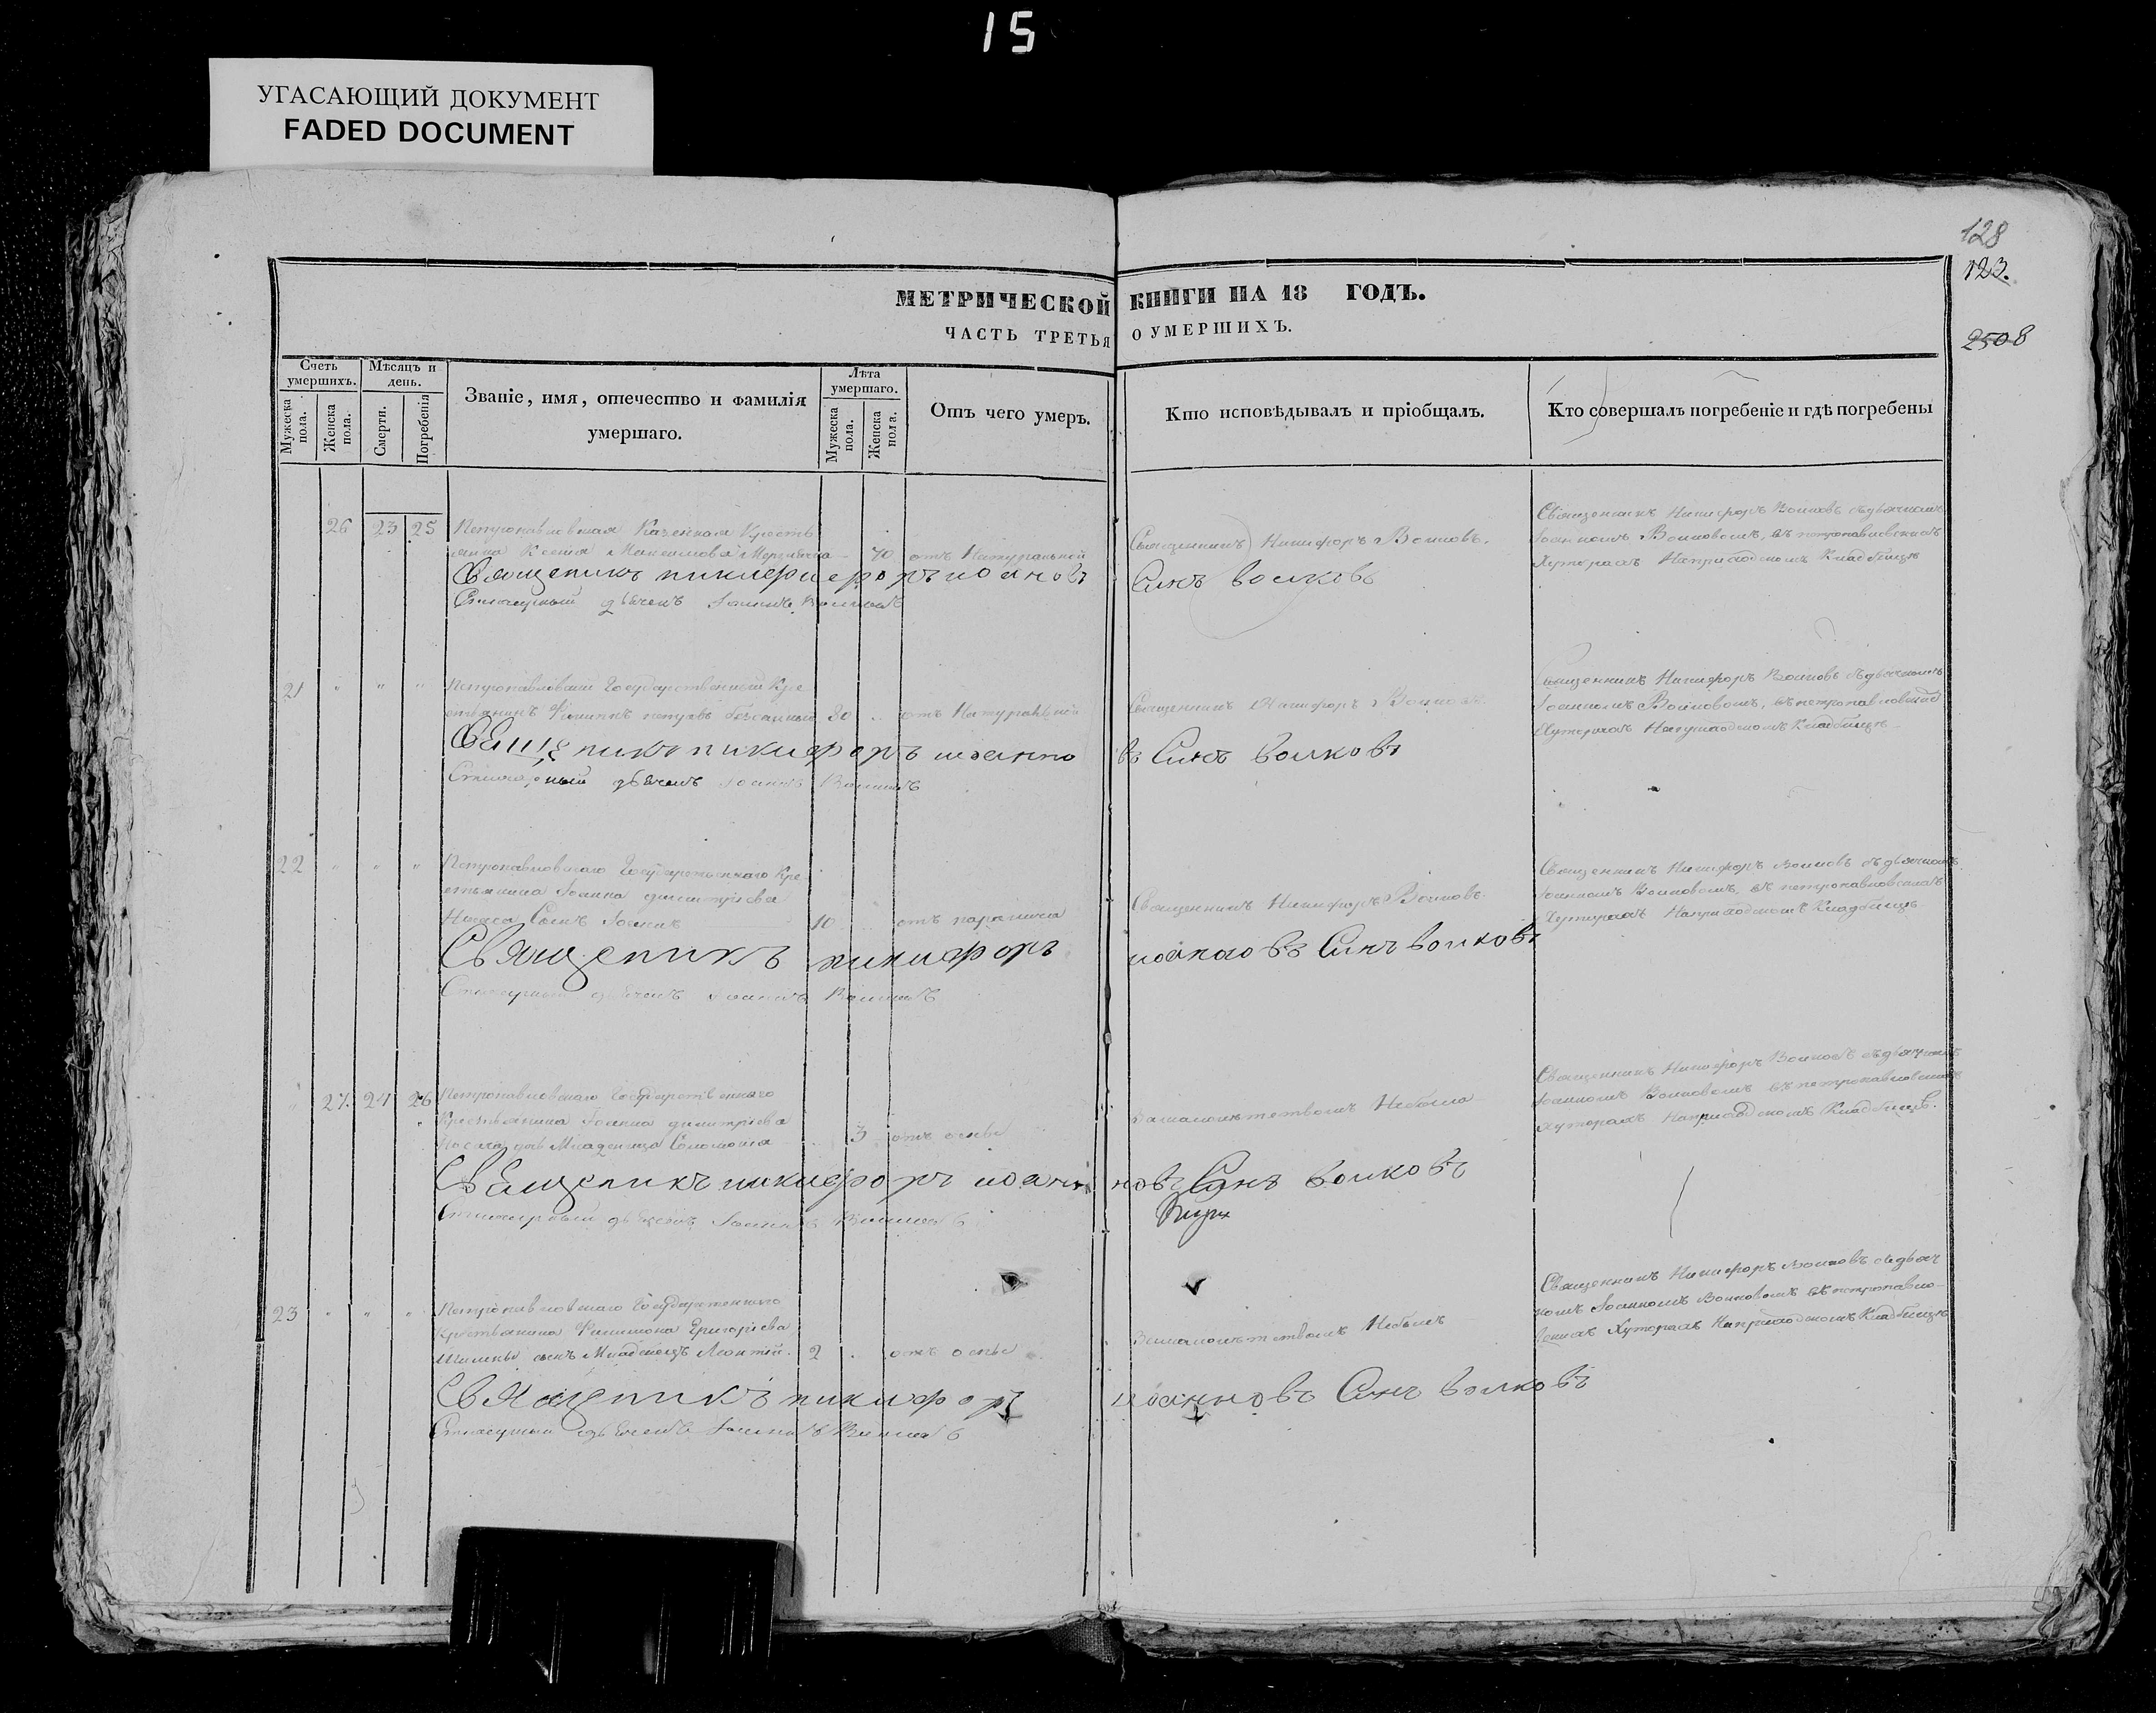 15
УГАСАЮЩИЙ ДОКУМЕНТ
FADED DOCUMENT
128
123.
2508
МЕТРИЧЕСКОЙ КНИГИ НА 18 ГОДЪ.
ЧАСТЬ ТРЕТЬЯ О УМЕРШИХЪ.
Счетъ умершихъ.
Мужеска пола.
Женска пола.
Мѣсяцъ и день.
Смерти.
Погребенія
Званіе, имя, отечество и фамилія
умершаго.
Лѣта умершаго.
Мужеска пола.
Женска пола.
Отъ чего умеръ.
Кто исповѣдывалъ и пріобщалъ.
Кто совершалъ погребеніе и гдѣ погребены
26 23 25 Петропавловская Казенная Крестъ
янка Ксенія Максимова 70 отъ Натуральной
Священникъ Никифоръ Волковъ.
Священникъ Никифоръ Волковъ съ дьячкомъ
Іоанномъ Волковомъ, въ петропавловскихъ
Хуторахъ На приходскомъ Кладбищѣ
Священикъ никифоръ иоановъ Синъ волковъ
Стихарный дьячекъ Іоаннъ Волковъ
21 " " " Петропавловскій Государственный Кре
стьянинъ Филиппъ петровъ 80 .. отъ Натуральной
Священникъ Никифоръ Волковъ.
Священникъ Никифоръ Волковъ съ дьячкомъ
Іоанномъ Волковомъ, въ петропавловскихъ
Хуторахъ На приходскомъ Кладбищѣ
никифоръ иоанно въ Синъ волковъ
Стихарный дьячекъ Іоаннъ Волковъ
22 " " " Петропавловскаго Государственнаго Кре
стьянина Іоанна димитріева
Сынъ Іоаннъ 10 отъ паралича
Священникъ Никифоръ Волковъ
Священникъ Никифоръ Волковъ съ дьячкомъ
Іоанномъ Волковомъ, въ петропавловскихъ
Хуторахъ На приходскомъ Кладбищѣ
Священикъ никифоръ иоановъ Синъ волковъ
Стихарный дьячекъ Іоаннъ Волковъ
" 27 24 26 Петропавловскаго Государственнаго
Крестьянина Іоанна димитріева
Младенца Соломонія 3 отъ оспы
За малолѣтствомъ Небыла
Священникъ Никифоръ Волковъ съ дьячкомъ
Іоанномъ Волковомъ въ петропавловскихъ
Хуторахъ На приходскомъ Кладбищѣ.
никифоръ иоанновъ Синъ волковъ
Стихарный дьячекъ Іоаннъ Волковъ
23 " " " Петропавловскаго Государственнаго
Крестьянина Филимона Григоріева
сынъ Младенецъ Леонтій. 2 . отъ оспы
За малолѣтствомъ Небылъ
Священникъ Никифоръ Волковъ съ дьяч
комъ Іоанномъ Волковомъ въ петропавло-
вскихъ Хуторахъ На приходскомъ Кладбищѣ
никифоръ иоанновъ Синъ волковъ
Стихарный дьячекъ Іоаннъ Волковъ